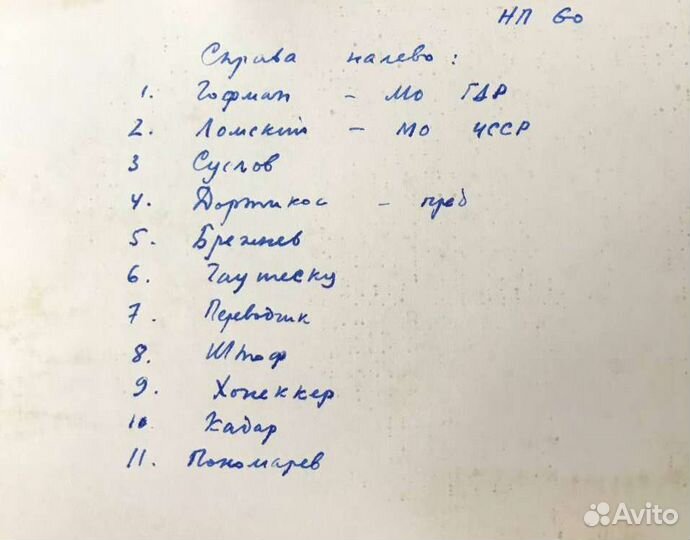 НП 60
Справа налево:
1. Гофман - МО ГДР
2. Ломский - МО ЧССР
3 Суслов
4. Дортикос - през
5. Брежнев
6. Чаушеску
7. Переводчик
8. Штоф
9. Хонеккер
10 Кадар
11. Пономарев
Avito